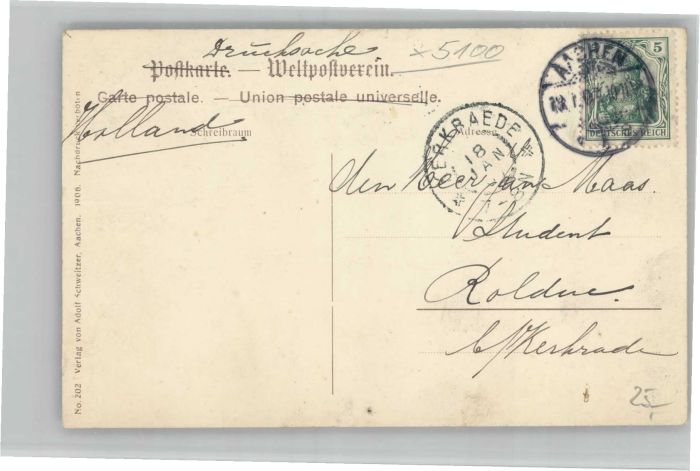 Drucksache
* 5100
Postkarte. — Weltpostverein.
Carte postale. — Union postale universelle.
Holland
Schreibraum
Adresse
AACHEN
5
DEUTSCHES REICH
KERKRAEDE
18
JAN
den Heer Jan Maas.
Student
Rolduc.
b/Kerkrade
25,-
No. 202 Verlag von Adolf Schweitzer, Aachen. 1908. Nachdruck verboten